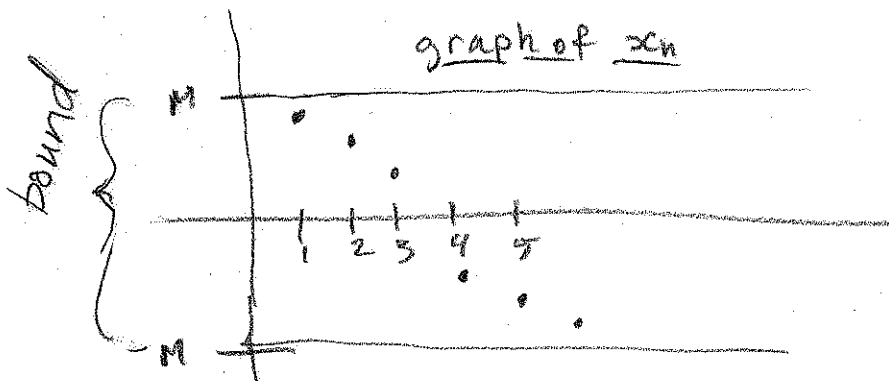 graph of xn
bound
M
1 2 3 4 5
M